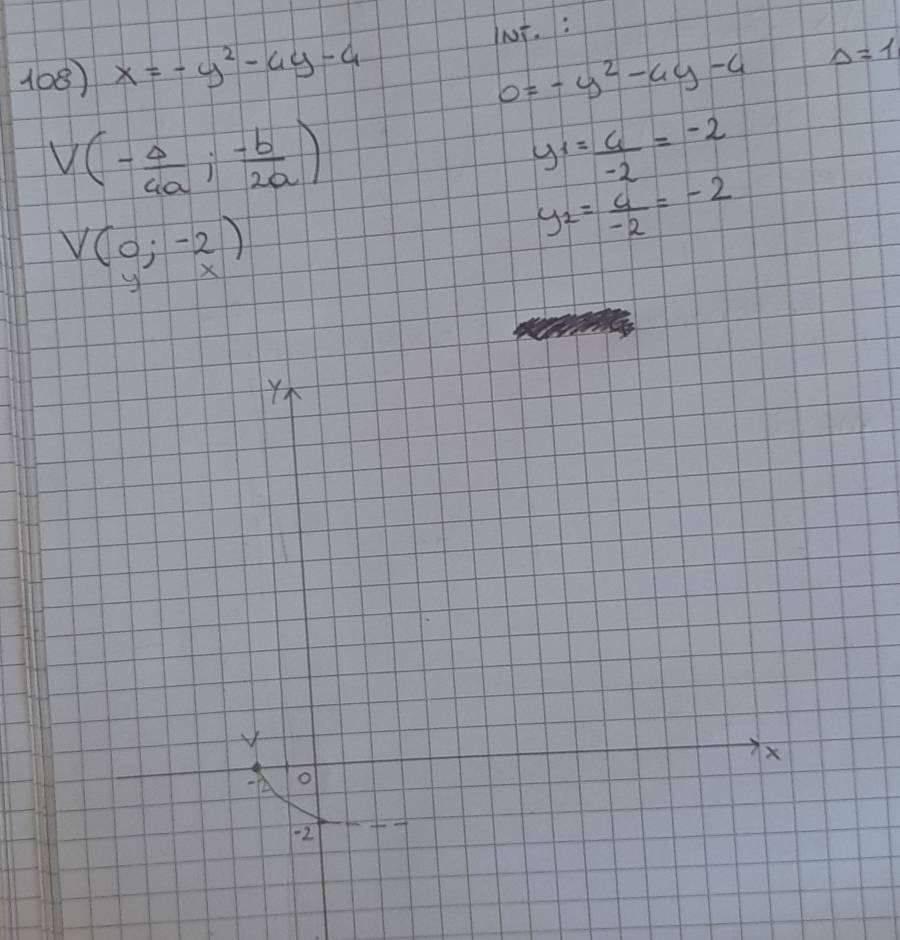 108) x = -y² - 4y - 4
V(-Δ/4a ; -b/2a)
V(0; -2)
y x
INT. :
0 = -y² - 4y - 4
Δ = 1
y1 = 4/-2 = -2
y2 = 4/-2 = -2
Y
V
x
-2 0
-2